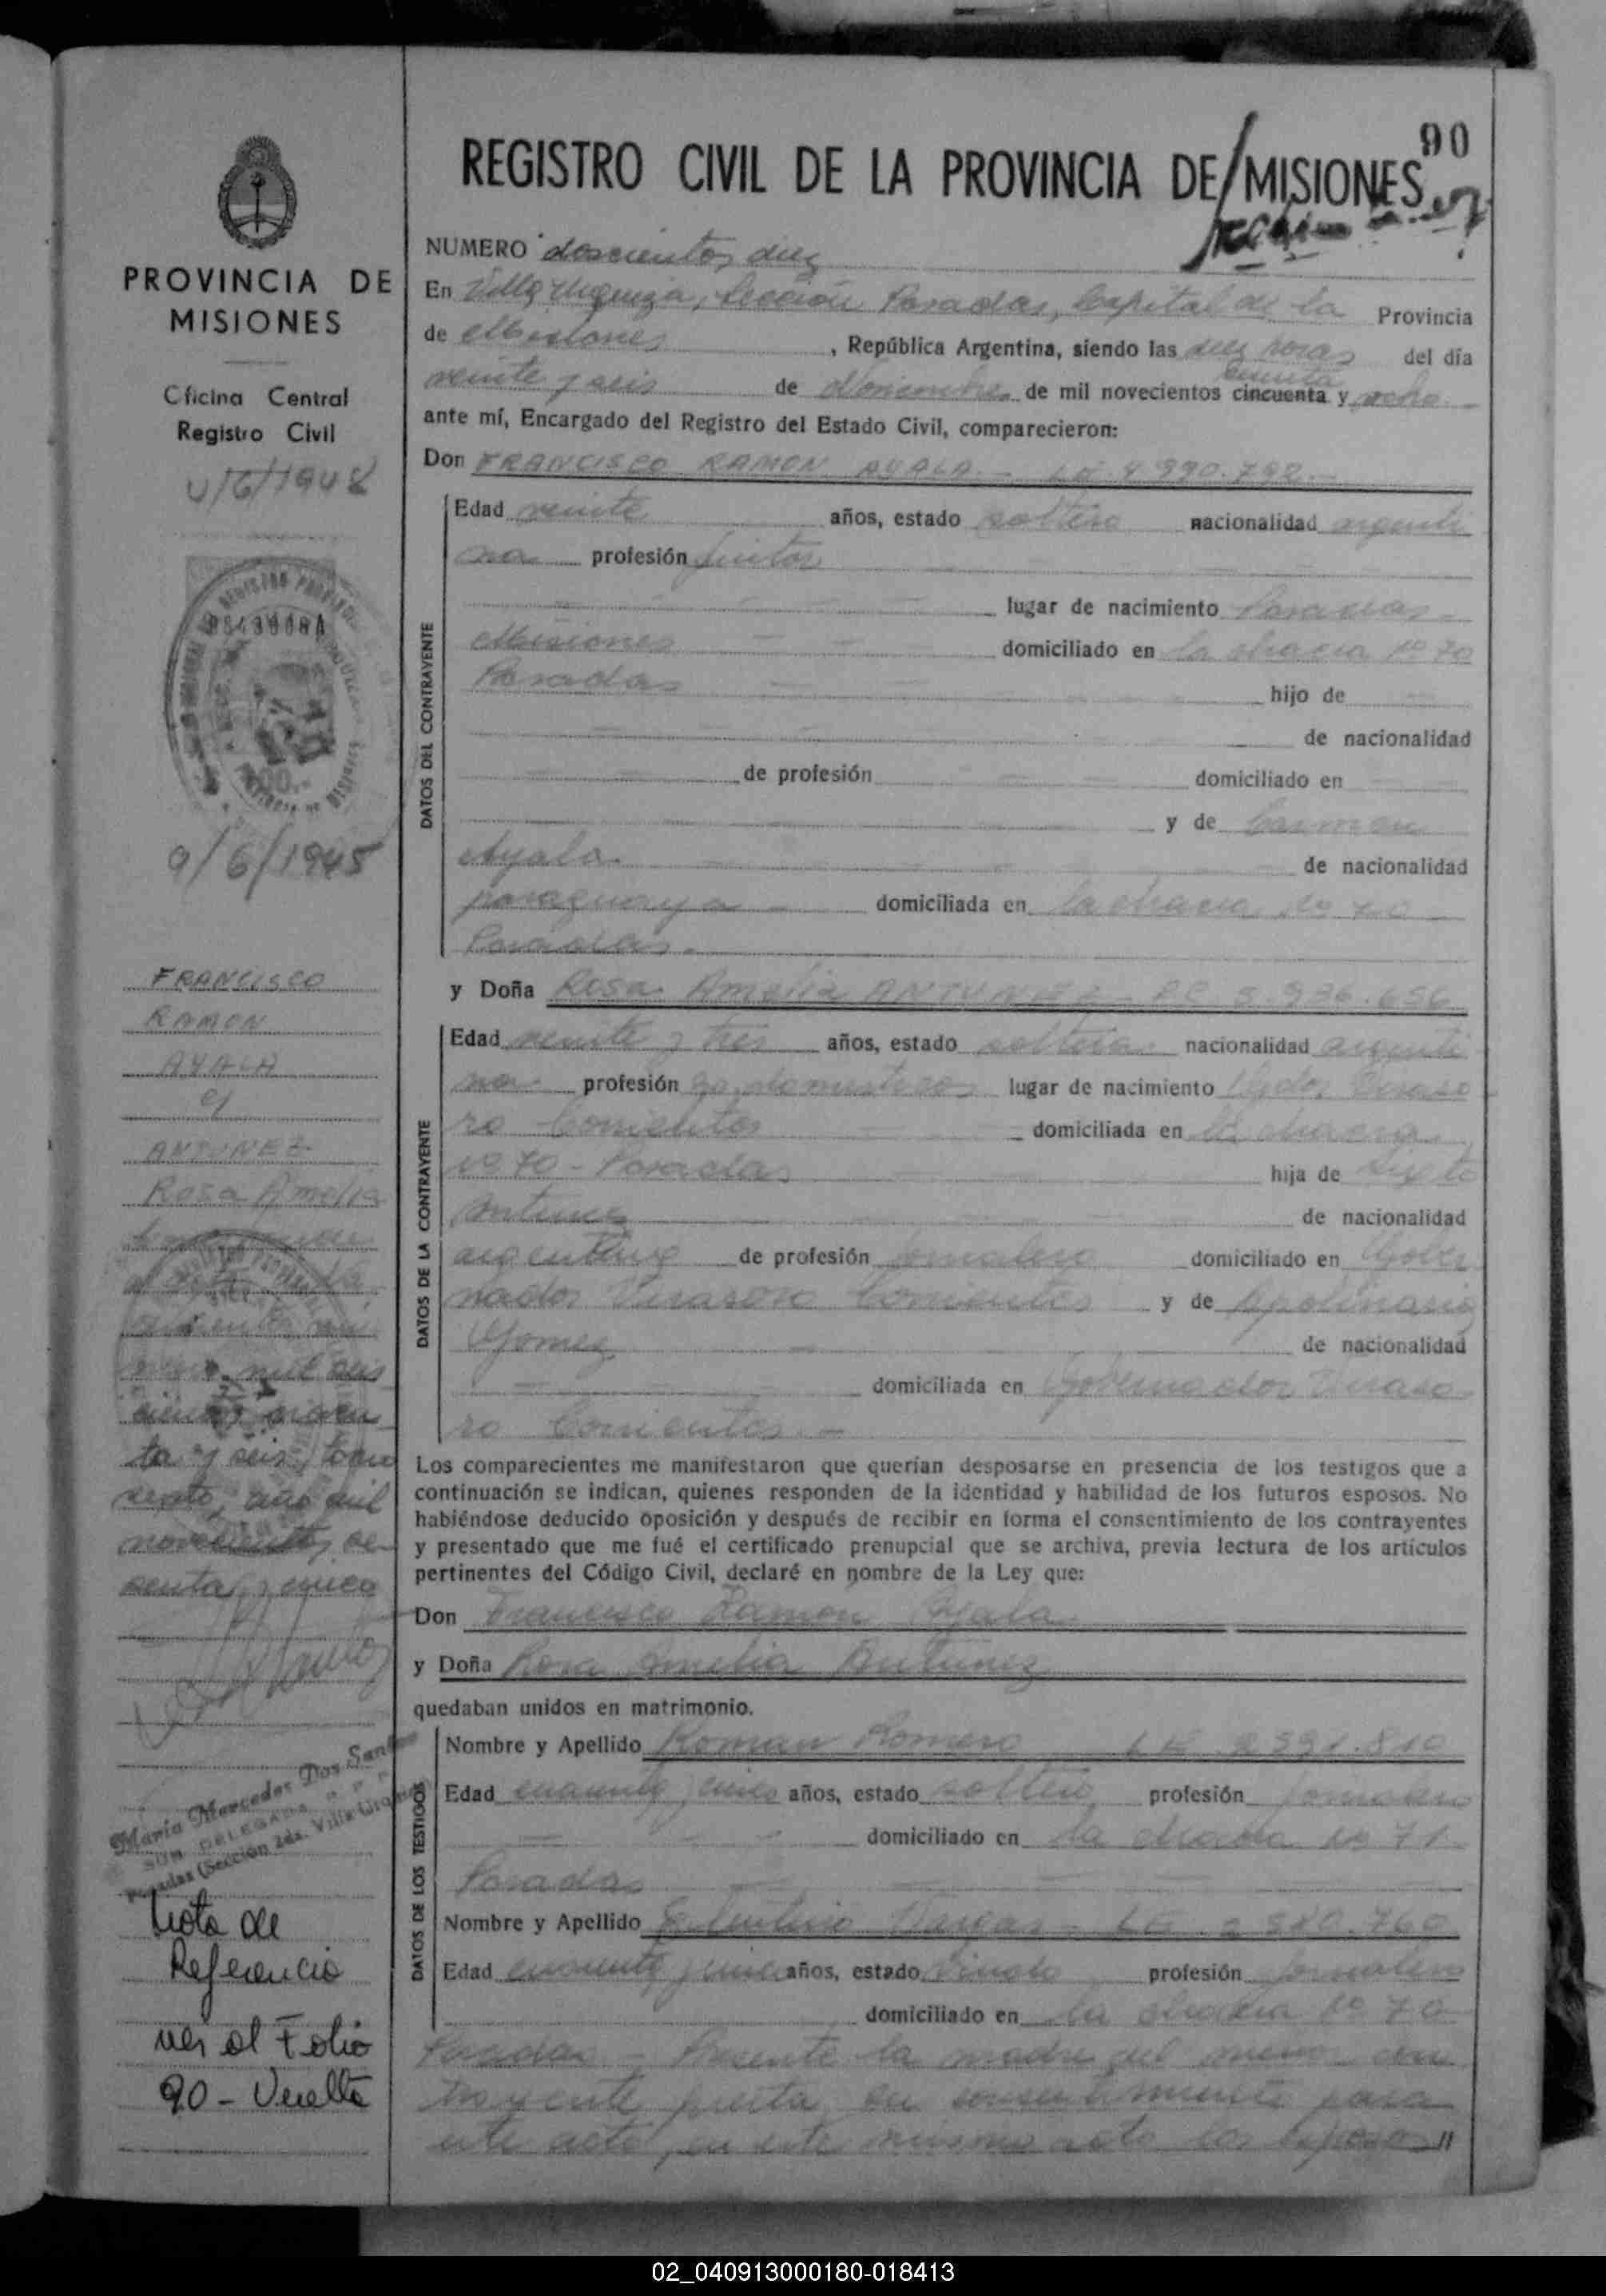 90
REGISTRO CIVIL DE LA PROVINCIA DE MISIONES
PROVINCIA DE
MISIONES
Oficina Central
Registro Civil
4/6/1948
9/6/1945
FRANCISCO
RAMON
AYALA
y
ANTUNEZ
Rosa Amelia
mil seis
cientos noven
ta y seis, tomo
sexto, año mil
novecientos se
senta y cinco
Maria Mercedes Dos Santos
SUB DELEGADA
Posadas (Sección 2da. Villa Urquiza)
Nota de
Referencia
ver al Folio
90 - Vuelta
NUMERO doscientos diez
En Villa Urquiza, Sección Posadas, Capital de la Provincia
de Misiones, República Argentina, siendo las diez horas del día
veinte y seis de Noviembre de mil novecientos cincuenta y ocho
sesenta
ante mí, Encargado del Registro del Estado Civil, comparecieron:
Don FRANCISCO RAMON AYALA.- LE.
DATOS DEL CONTRAYENTE
Edad veinte años, estado soltero nacionalidad argenti
na profesión pintor
lugar de nacimiento Posadas
Misiones domiciliado en la chacra Nº 70
Posadas hijo de
de nacionalidad
de profesión domiciliado en
y de Carmen
Ayala de nacionalidad
paraguaya domiciliada en la chacra Nº 70
Posadas.
y Doña Rosa Amelia ANTUNEZ
DATOS DE LA CONTRAYENTE
Edad veinte y tres años, estado soltera nacionalidad argenti
na profesión qs. domesticos lugar de nacimiento Gdor. Viraso
ro Corrientes domiciliada en la chacra
Nº 70 - Posadas hija de
Antunez de nacionalidad
argentino de profesión jornalero domiciliado en Gober
nador Virasoro Corrientes y de Apolinaria
Gomez de nacionalidad
domiciliada en Gobernador Viraso
ro Corrientes.-
Los comparecientes me manifestaron que querían desposarse en presencia de los testigos que a
continuación se indican, quienes responden de la identidad y habilidad de los futuros esposos. No
habiéndose deducido oposición y después de recibir en forma el consentimiento de los contrayentes
y presentado que me fué el certificado prenupcial que se archiva, previa lectura de los artículos
pertinentes del Código Civil, declaré en nombre de la Ley que:
Don Francisco Ramon Ayala
y Doña Rosa Amelia Antunez
quedaban unidos en matrimonio.
DATOS DE LOS TESTIGOS
Nombre y Apellido Roman Romero LE
Edad años, estado soltero profesión jornalero
domiciliado en la chacra Nº 71
Posadas
Nombre y Apellido Vargas - LE
Edad años, estado viudo profesión jornalero
domiciliado en la chacra Nº 70
Posadas - Presente la madre del menor con
trayente presta su consentimiento para
este acto, en este mismo acto los esposos //
02_040913000180-018413